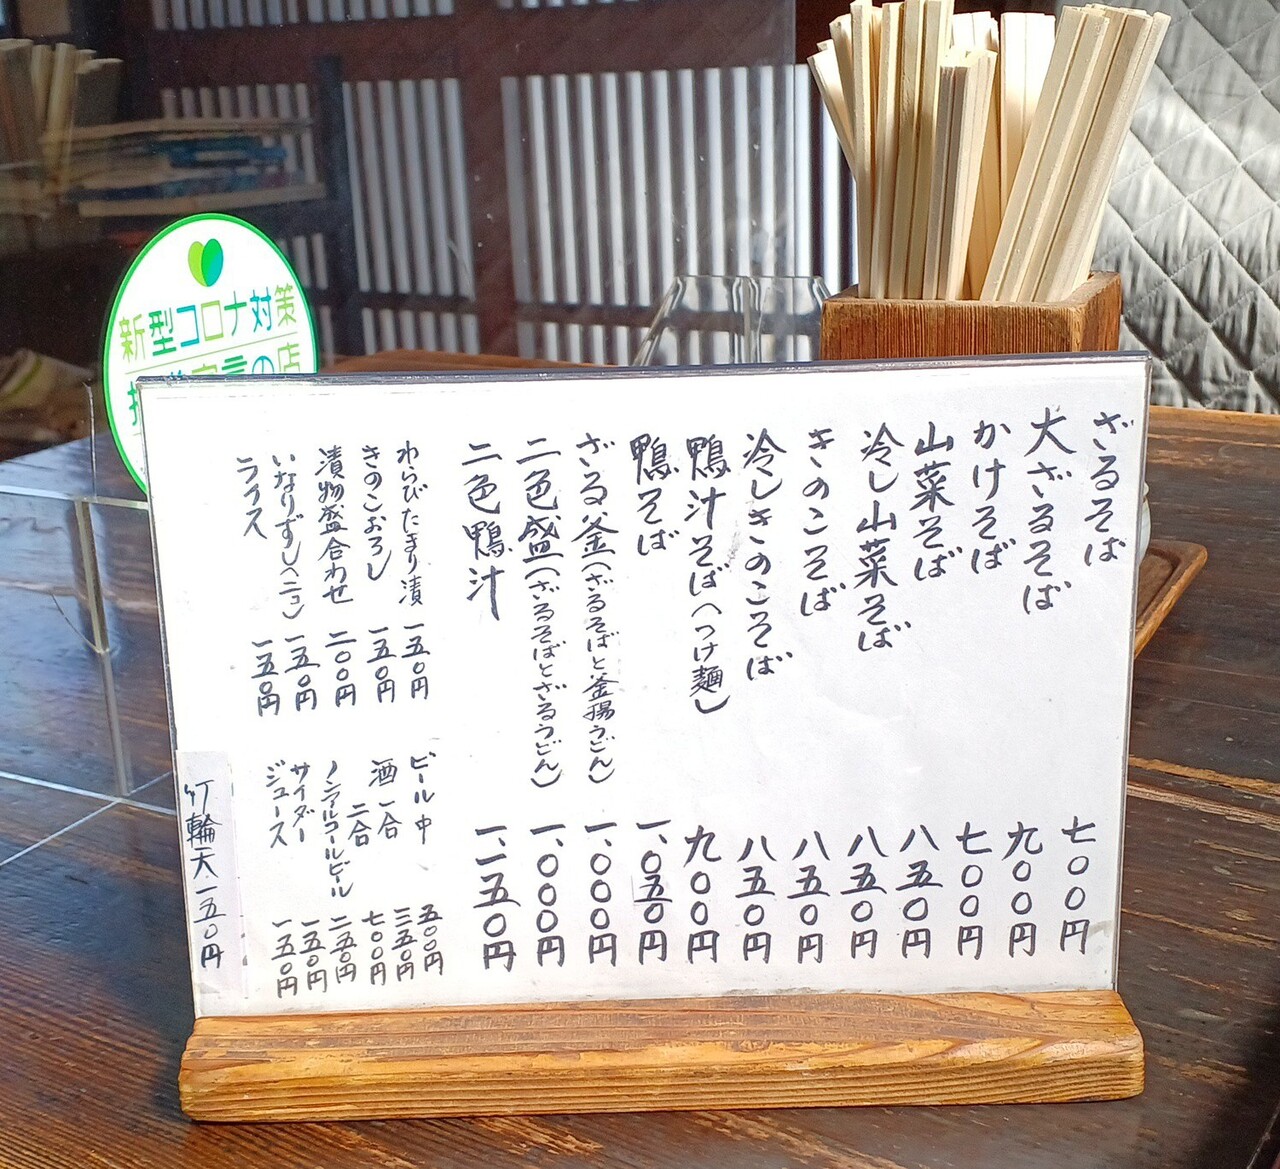 ざるそば 七〇〇円
大ざるそば 九〇〇円
かけそば 七〇〇円
山菜そば 八五〇円
冷し山菜そば 八五〇円
きのこそば 八五〇円
冷しきのこそば 八五〇円
鴨汁そば(つけ麺) 九〇〇円
鴨そば 一、〇五〇円
ざる釜(ざるそばと釜揚うどん) 一、〇〇〇円
二色盛(ざるそばとざるうどん) 一、〇〇〇円
二色鴨汁 一、一五〇円
わらびたまり漬 一五〇円
きのこおろし 一五〇円
漬物盛合わせ 二〇〇円
いなりずし(二コ) 一五〇円
ライス 一五〇円
ビール中 五〇〇円
酒一合 三五〇円
二合 七〇〇円
ノンアルコールビール 二五〇円
サイダー 一五〇円
ジュース 一五〇円
竹輪天 一五〇円
新型コロナ対策
宣言の店